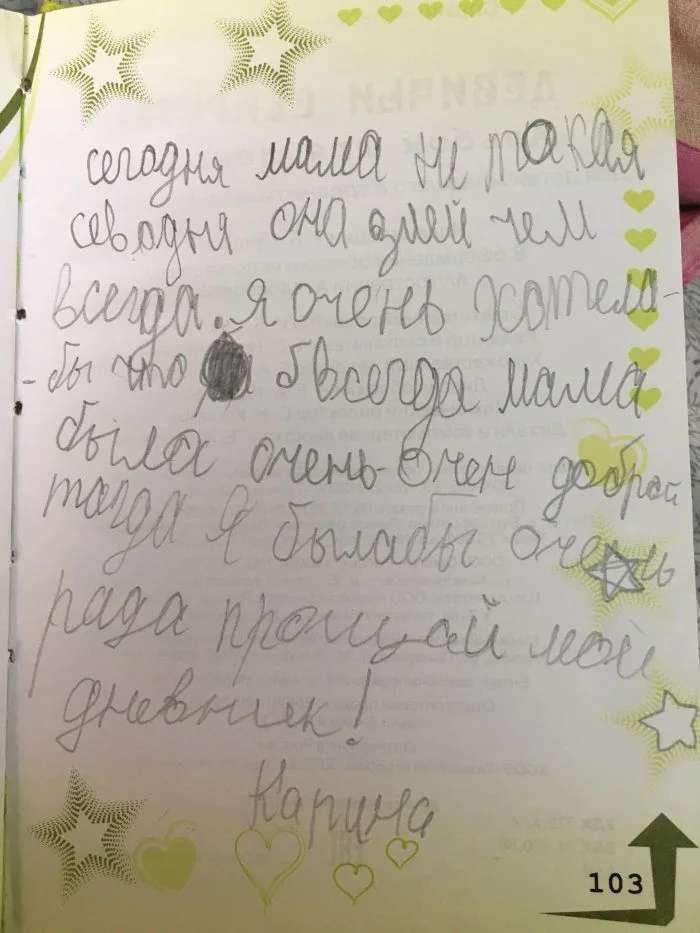 сегодня мама ни такая
севодня она злей чем
всегда. я очень хотела-
-бы что б всегда мама
была очень-очен доброй
тогда я былабы очень
рада прощай мой
дневник!
Карина
103